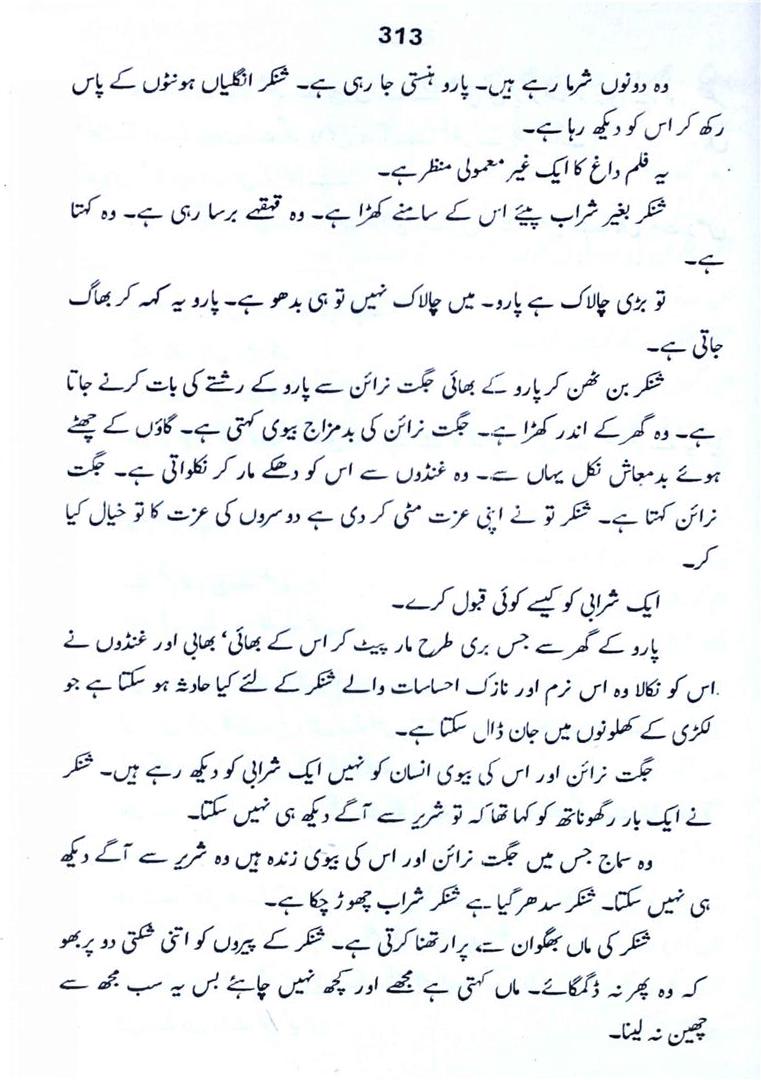 313
وہ دونوں شرما رہے ہیں۔ پارو ہنستی جا رہی ہے۔ شنکر انگلیاں ہونٹوں کے پاس
رکھ کر اس کو دیکھ رہا ہے۔
یہ فلم داغ کا ایک غیر معمولی منظر ہے۔
شنکر بغیر شراب پیئے اس کے سامنے کھڑا ہے۔ وہ قہقہے برسا رہی ہے۔ وہ کہتا
ہے۔
تو بڑی چالاک ہے پارو۔ میں چالاک نہیں تو ہی بدھو ہے۔ پارو یہ کہہ کر بھاگ
جاتی ہے۔
شنکر بن ٹھن کر پارو کے بھائی جگت نرائن سے پارو کے رشتے کی بات کرنے جاتا
ہے۔ وہ گھر کے اندر کھڑا ہے۔ جگت نرائن کی بدمزاج بیوی کہتی ہے۔ گاؤں کے چھٹے
ہوئے بدمعاش نکل یہاں سے۔ وہ غنڈوں سے اس کو دھکے مار کر نکلواتی ہے۔ جگت
نرائن کہتا ہے۔ شنکر تو نے اپنی عزت مٹی کر دی ہے دوسروں کی عزت کا تو خیال کیا
کر۔
ایک شرابی کو کیسے کوئی قبول کرے۔
پارو کے گھر سے جس بری طرح مار پیٹ کر اس کے بھائی‘ بھابی اور غنڈوں نے
اس کو نکالا وہ اس نرم اور نازک احساسات والے شنکر کے لئے کیا حادثہ ہو سکتا ہے جو
لکڑی کے کھلونوں میں جان ڈال سکتا ہے۔
جگت نرائن اور اس کی بیوی انسان کو نہیں ایک شرابی کو دیکھ رہے ہیں۔ شنکر
نے ایک بار رگھوناتھ کو کہا تھا کہ تو شریر سے آگے دیکھ ہی نہیں سکتا۔
وہ سماج جس میں جگت نرائن اور اس کی بیوی زندہ ہیں وہ شریر سے آگے دیکھ
ہی نہیں سکتا۔ شنکر سدھر گیا ہے شنکر شراب چھوڑ چکا ہے۔
شنکر کی ماں بھگوان سے پرارتھنا کرتی ہے۔ شنکر کے پیروں کو اتنی شکتی دو پربھو
کہ وہ پھر نہ ڈگمگائے۔ ماں کہتی ہے مجھے اور کچھ نہیں چاہئے بس یہ سب مجھ سے
چھین نہ لینا۔